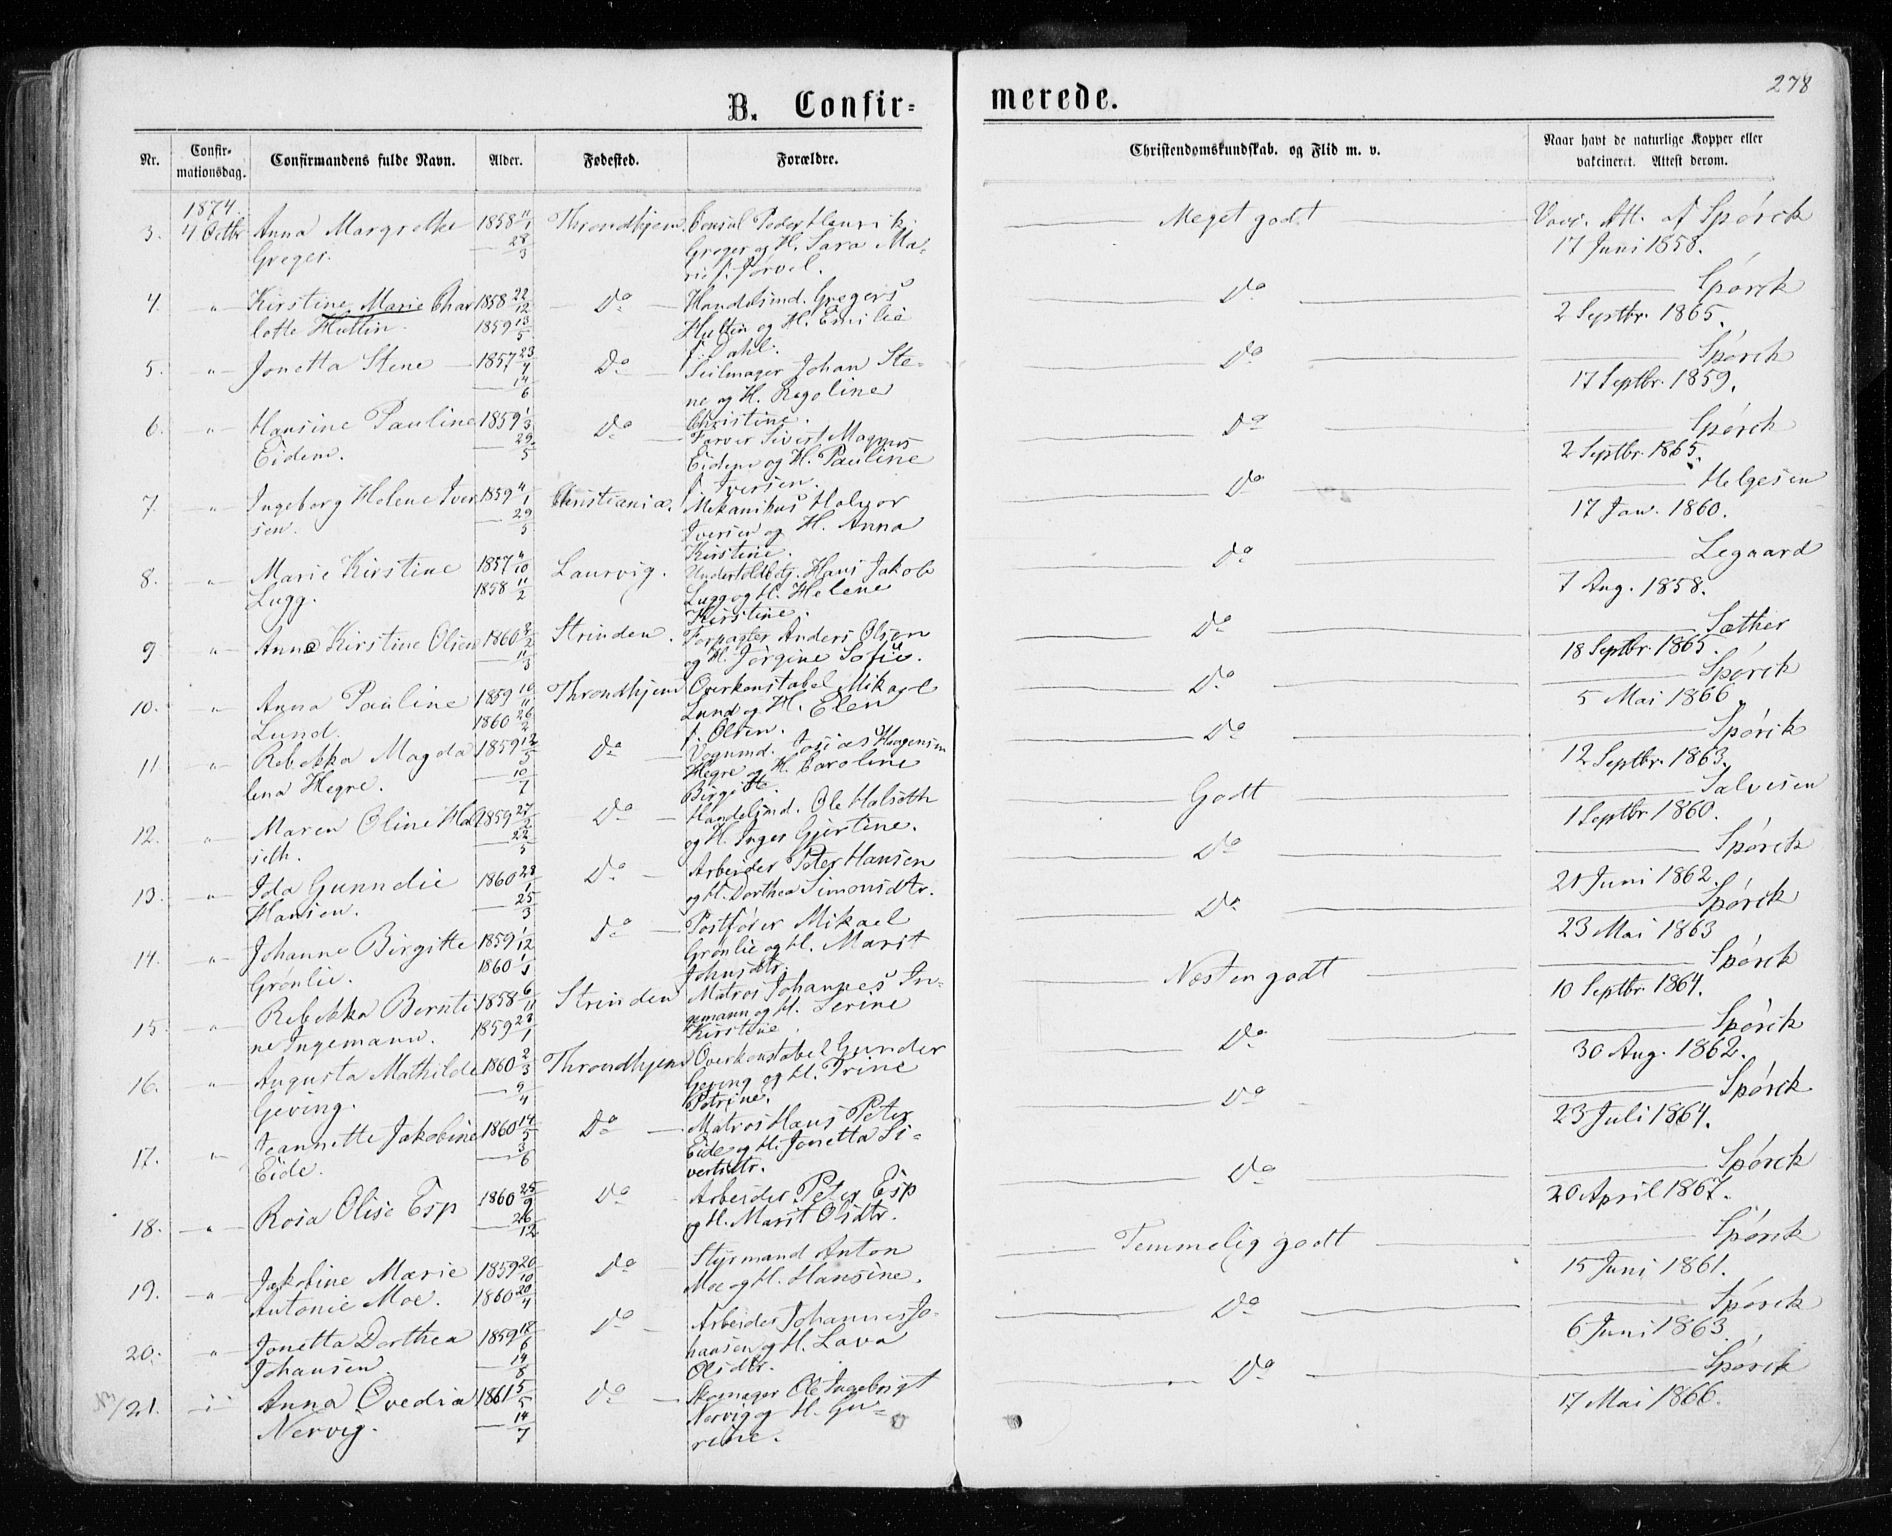 278
B. Confir-
merede.
Nr. Confir-mationsdag. Confirmandens fulde Navn. Alder. Fødested. Forældre. Christendomskundskab. og Flid m. v. Naar havt de naturlige Kopper eller vakcineret. Attest derom.
1874.
3. 4 Octbr Anna Margrethe 1858 11/1 Throndhjem. Consul Peder Henrik Meget godt Vacc. Att. af Spörck
Greger. — 28/3 Greger og H. Sara Ma- 17 Juni 1858.
rie f.
4. " Kirstine Marie Char 1858 22/12 Do Handelsmd. Gregers Do Spörck
lotte Huttin. 1859 13/5 Huttin og H. Emilie 2 Septbr. 1865.
f. Dahl.
5. " Jonetta Stene 1857 23/4 Do Seilmager Johan Ste- Do Spörck
— 14/6 ne og H. Regoline 17 Septbr. 1859.
Christine.
6. " Hansine Pauline 1859 1/3 Do Farver Sivert Magnus Do Spörck
Eidem. — 29/5 Eidem og H. Pauline 2 Septbr. 1865.
f. Iversen.
7. " Ingeborg Helene Iver 1859 4/1 Christiania. Mekanikus Halvor Do Helgesen
sen. — 29/5 Iversen og H. Anna 17 Jan. 1860.
Kirstine.
8. " Marie Kirstine 1857 4/10 Laurvig. Undertoldbtj. Hans Jakob Do Legaard
Lugg. 1858 11/2 Lugg og H. Helene 7 Aug. 1858.
Kirstine.
9 " Anna Kirstine Olsen 1860 2/2 Strinden. Forpagter Anders Olsen Do Sæther
— 11/3 og H. Jörgine Sofie. 18 Septbr. 1865.
10. " Anna Pauline 1859 10/11 Throndhjem Overkonstabel Mikael Do Spörck
Lund. 1860 26/2 Lund og H. Elen 5 Mai 1866.
f. Olsen.
11 " Rebekka Magda 1859 12/5 Do Vognmd. Tosias Haagensen Do Spörck
lena Hegre. — 10/7 Hegre og H. Caroline 12 Septbr. 1863.
Birgitte.
12. " Maren Oline Hal 1859 27/2 Do Handelsmd. Ole Halseth Godt Salvesen
seth. — 22/5 og H. Inger Gjertine. 1 Septbr 1860.
13. " Ida Gunnelie 1860 23/1 Do Arbeider Peter Hansen Do Spörck
Hansen. — 25/3 og H. Dorthea Simonsdtr. 21 Juni 1862.
14. " Johanne Birgitte 1859 1/12 Do Postförer Mikael Do Spörck
Grönlie. 1860 1/1 Grönlie og H. Marit 23 Mai 1863
Johnsdtr.
15. " Rebekka Bernti 1858 6/11 Strinden Matros Johannes In- Næsten godt Spörck
ne Ingemann. 1859 23/1 gemann og H. Serine 10 Septbr 1864.
Kirstine.
16. " Augusta Mathilde 1860 2/3 Throndhjem Overkonstabel Gunder Do Spörck
Geving. — 9/4 Geving og H. Trine 30 Aug. 1862.
Petrine.
17. " Jeannette Jakobine 1860 14/5 Do Matros Hans Peter Do Spörck
Eide. — 3/6 Eide og H. Jonetta Si- 23 Juli 1864.
vertsdtr.
18. " Rosa Olise Esp 1860 25/9 Do Arbeider Peter Esp Do Spörck
— 26/12 og H. Marit Olsdtr. 20 April 1867.
19. " Jakobine Marie 1859 20/10 Do Styrmand Anton Temmelig godt Spörck
Antonie Moe. 1860 20/4 Moe og H. Hansine. 15 Juni 1861.
20. " Jonetta Dorthea 1859 18/6 Do Arbeider Johannes Jo- Do Spörck
Johansen. — 14/8 hansen og H. Lava 6 Juni 1863.
Olsdtr.
21. " Anna Ovedia 1861 5/5 Do Skomager Ole Ingebrigt Do Spörck
Nervig. — 14/7 Nervig og H. Gu- 17 Mai 1866.
rine.